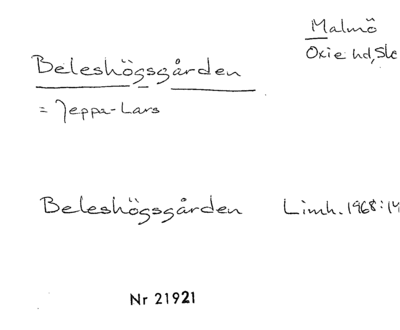 Malmö
Oxie hd, Ske
Beleshögsgården
= Jeppa-Lars
Beleshögsgården Limh. 1968:14
Nr 21921